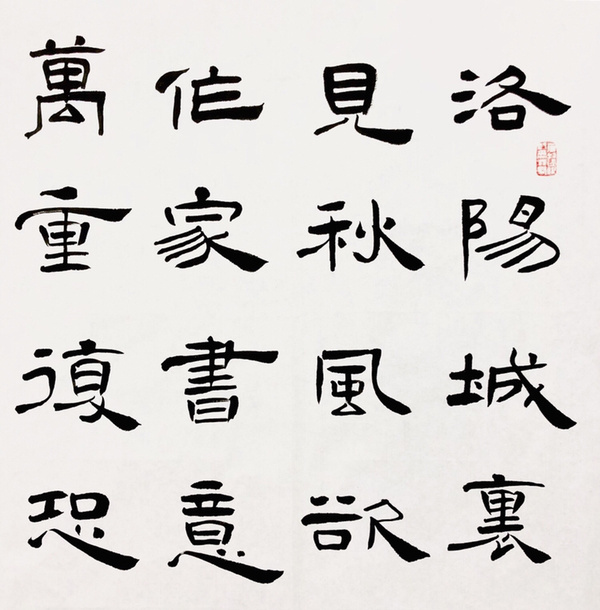 洛陽城裏
見秋風欲
作家書意
萬重復恐